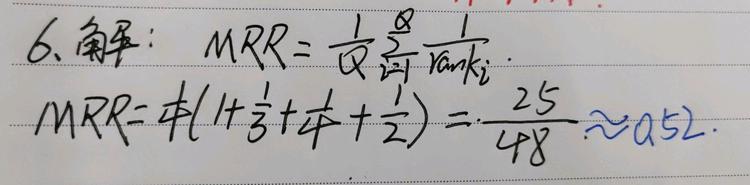 6、解: MRR = 1/Q Q∑i=1 1/ranki.
MRR = 1/4(1+1/3+1/4+1/2) = 25/48 ≈0.52.